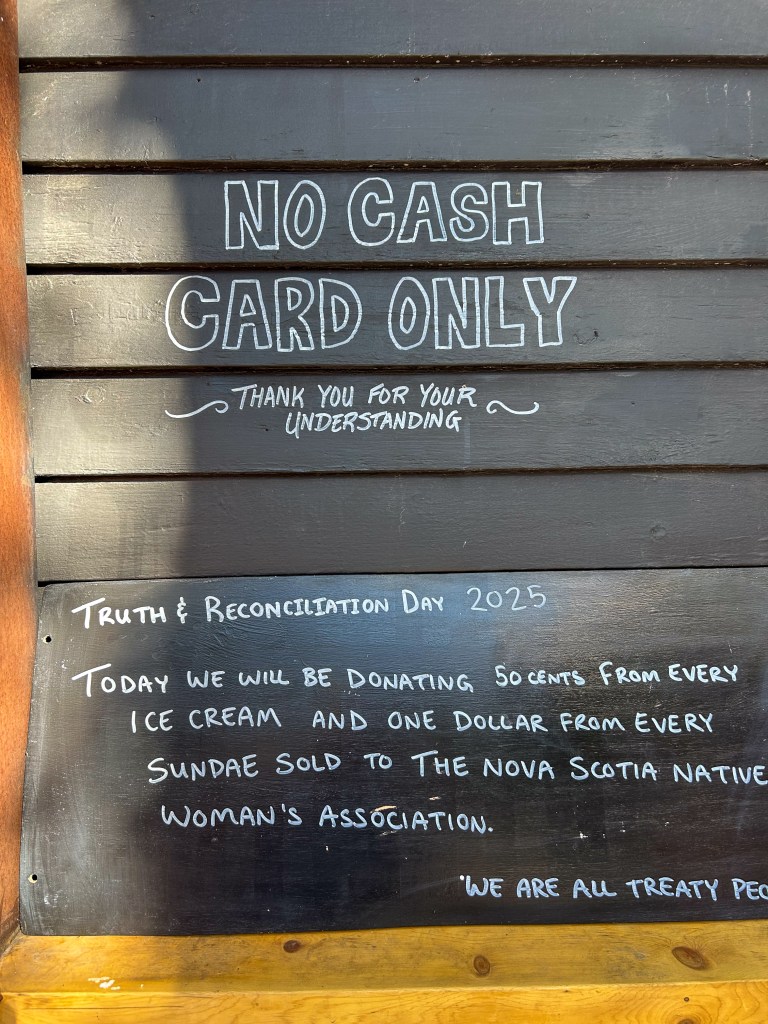 NO CASH
CARD ONLY
THANK YOU FOR YOUR
UNDERSTANDING
TRUTH & RECONCILIATION DAY 2025
TODAY WE WILL BE DONATING 50 CENTS FROM EVERY
ICE CREAM AND ONE DOLLAR FROM EVERY
SUNDAE SOLD TO THE NOVA SCOTIA NATIVE
WOMAN'S ASSOCIATION.
'WE ARE ALL TREATY